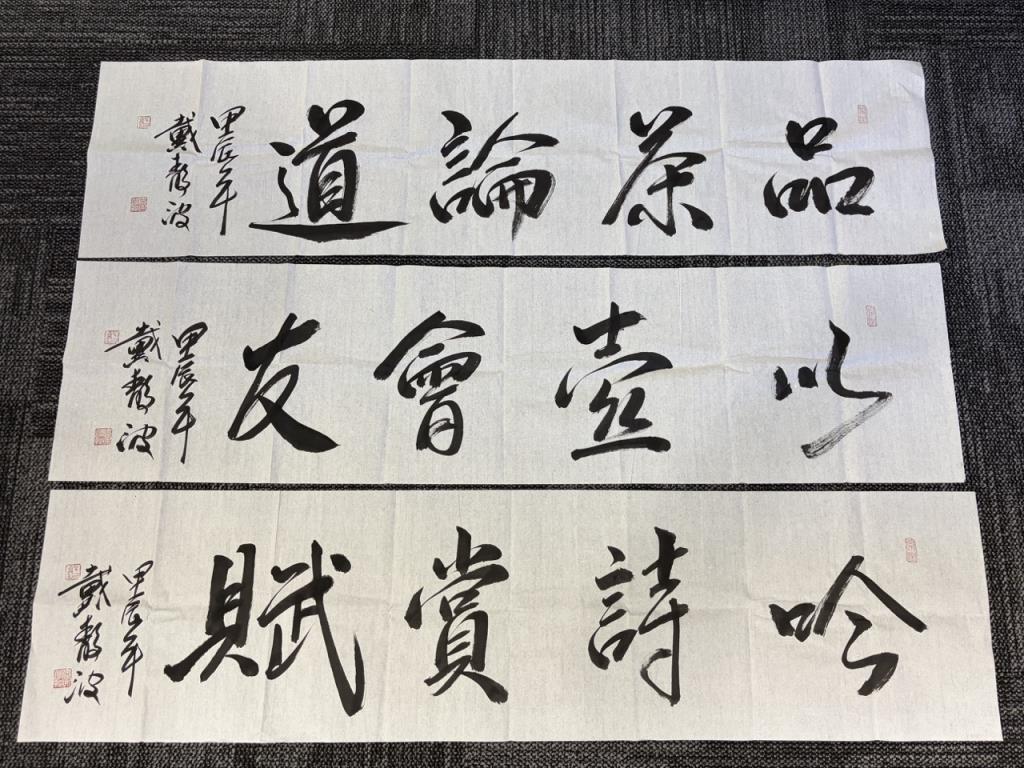 品茶論道
甲辰年
戴
波
以壺會友
甲辰年
戴
波
吟詩賞賦
甲辰年
戴
波